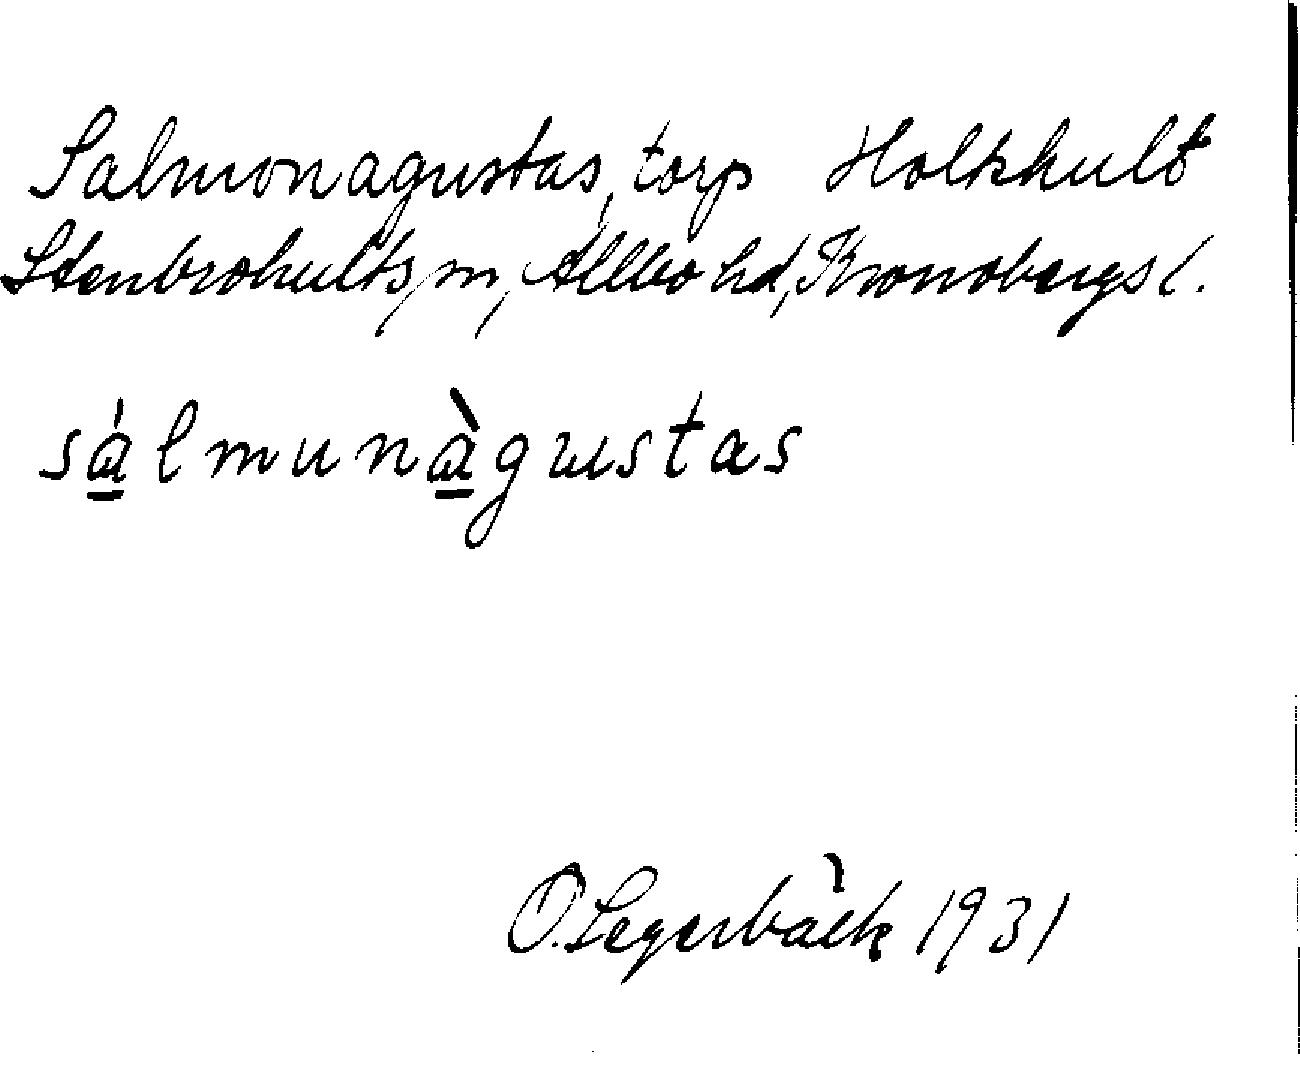 Salmonagustas, torp Holkhult
Stenbrohults sn, Allbo hd, Kronobergs l.
sálmunàgustas
O. Segerbäck 1931